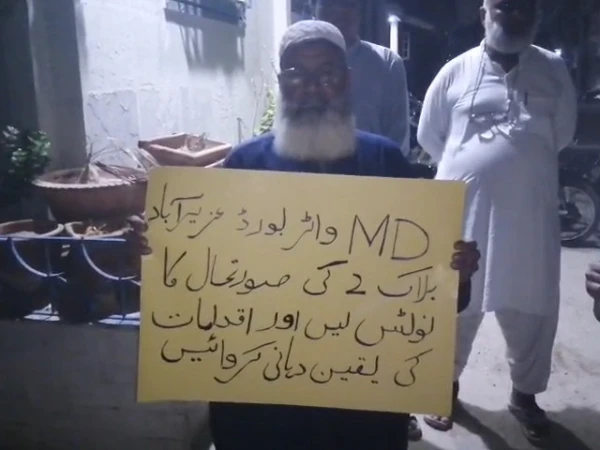 MD واٹر بورڈ عزیزآباد
بلاک 2 کی صورتحال کا
نوٹس لیں اور اقدامات
کی یقین دہانی کروائیں